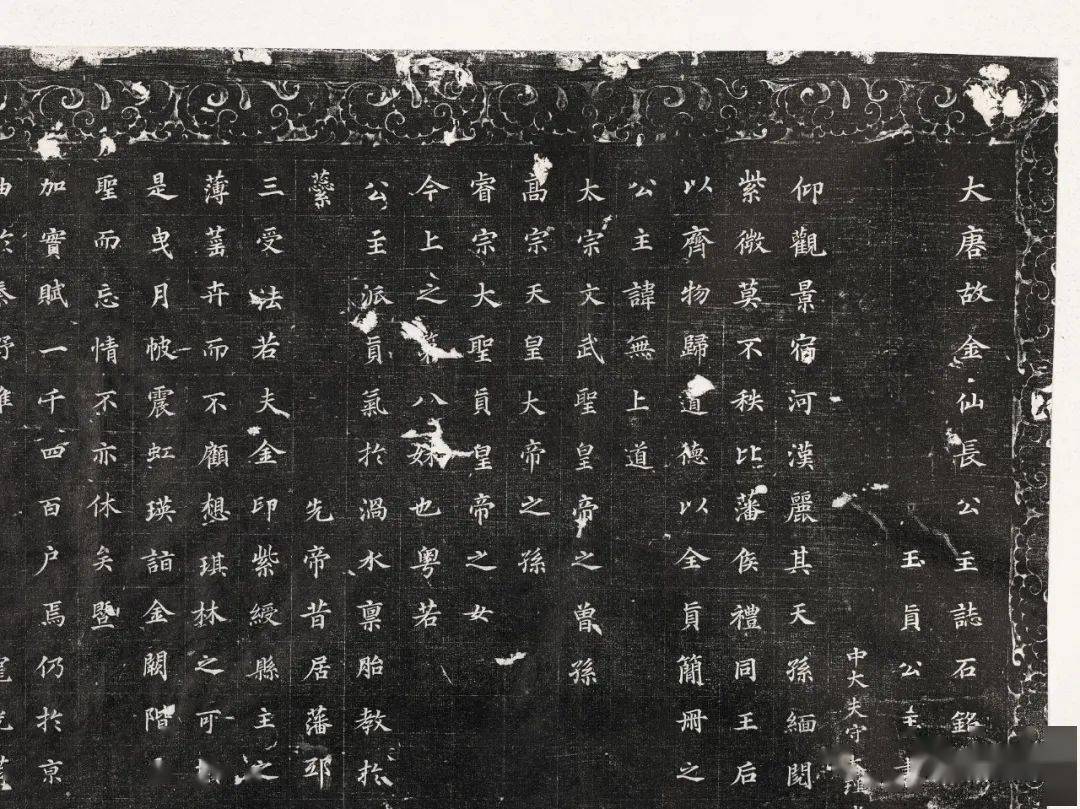 大唐故金仙長公主誌石銘
玉貞公主書
中大夫守大理
仰觀景宿河漢麗其天孫緬閱
紫微莫不秩比藩侯禮同王后
以齊物歸道德以全貞簡冊之
公主諱無上道
太宗文武聖皇帝之曾孫
高宗天皇大帝之孫
睿宗大聖貞皇帝之女
今上之第八妹也粵若
公主派貞氣於渦水禀胎教於
蘂 先帝昔居藩邸
三受法若夫金印紫綬縣主之
薄蕣卉而不顧想琪林之可
是曳月帔震虹瑛詣金闕階
聖而忘情不亦休矣暨
加實賦一千四百户焉仍於京
於奉